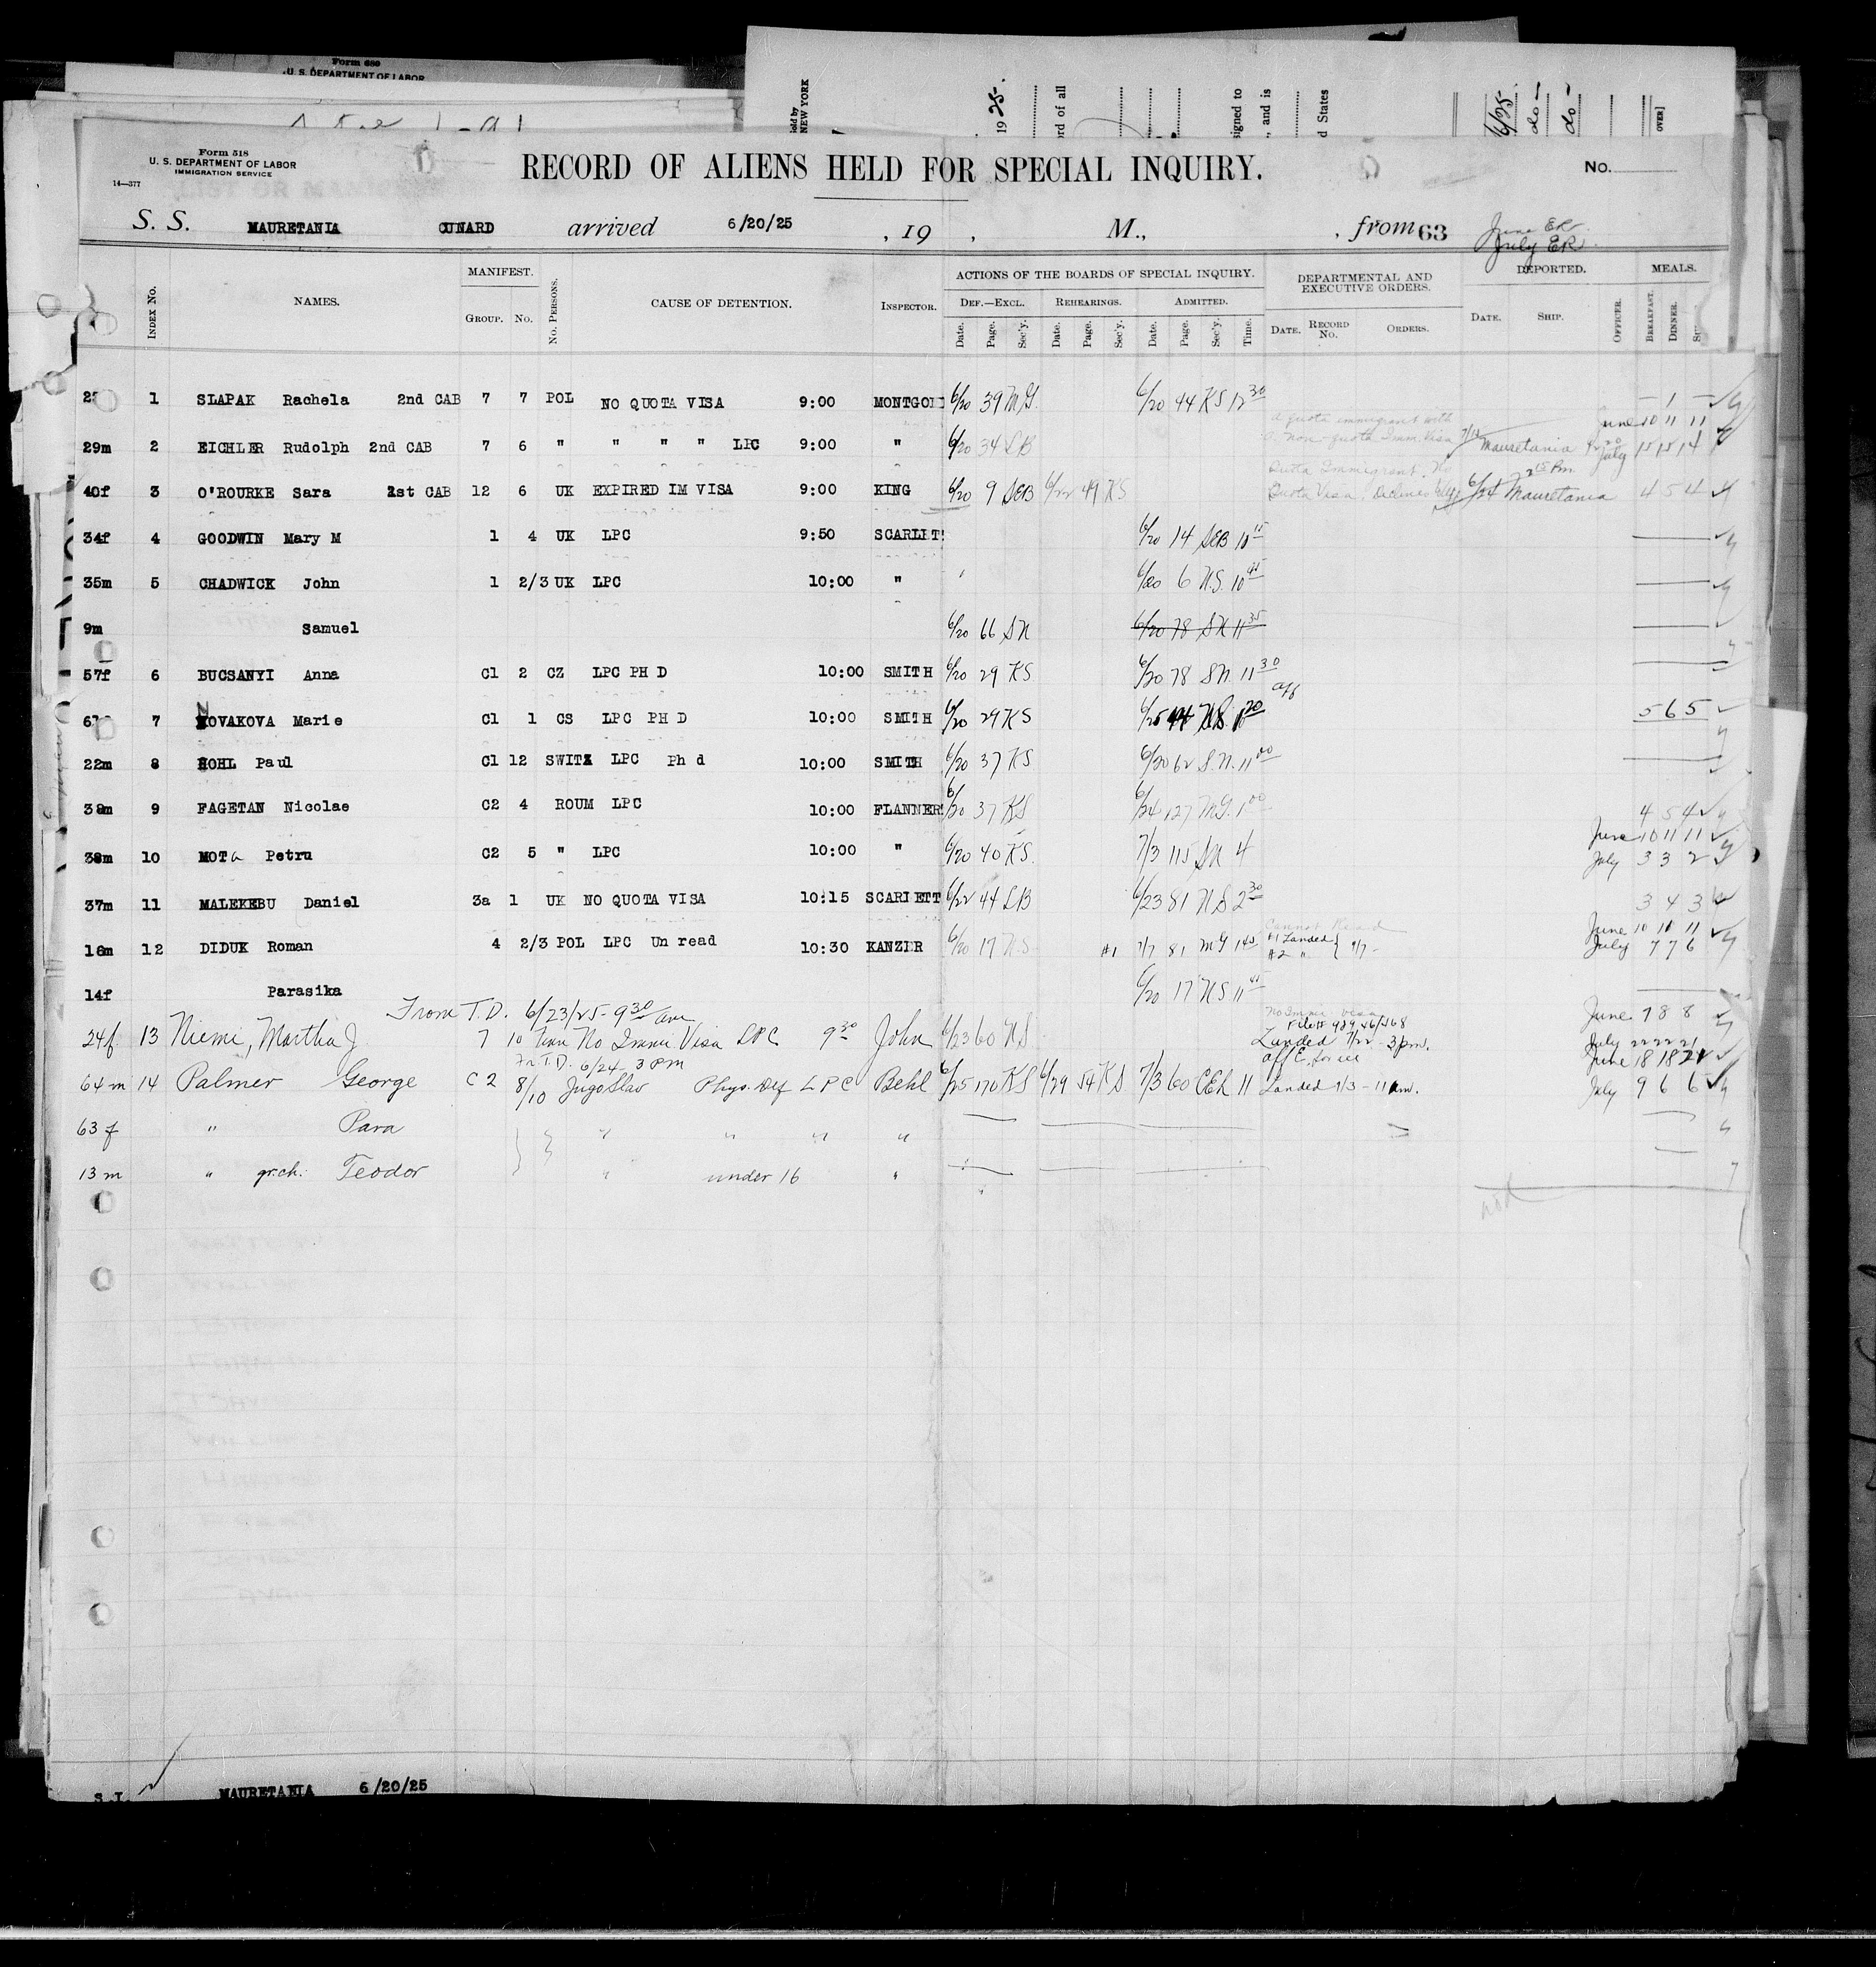 Form 680
U. S. DEPARTMENT OF LABOR
sold by
NEW YORK
19 25-.
ord of all
signed to
, and is
d States
6/25-
do -
do -
OVER]
Form 518
U. S. DEPARTMENT OF LABOR
IMMIGRATION SERVICE
14—377
RECORD OF ALIENS HELD FOR SPECIAL INQUIRY.
No.
S. S. MAURETANIA CUNARD arrived 6/20/25 , 19 , M., , from 63
June ER
July ER
INDEX No. NAMES. MANIFEST. GROUP. No. No. PERSONS. CAUSE OF DETENTION. INSPECTOR.
ACTIONS OF THE BOARDS OF SPECIAL INQUIRY. DEF.—EXCL. REHEARINGS. ADMITTED.
Date. Page. Sec'y. Date. Page. Sec'y. Date. Page. Sec'y. Time.
DEPARTMENTAL AND EXECUTIVE ORDERS. DATE. RECORD No. ORDERS.
DEPORTED. DATE. SHIP. OFFICER. MEALS. BREAKFAST. DINNER.
1 SLAPAK Rachela 2nd CAB 7 7 POL NO QUOTA VISA 9:00 MONTGO 6/20 39 MG. 6/20 44 KS 12 30 – 1 –
A quota immigrant with
non-quota Imm. Visa
June 10 11 11
29m 2 EICHLER Rudolph 2nd CAB 7 6 " " " " LPC 9:00 " 6/20 34 LB Mauretania July 15 15 14
Quota Immigrant. No
Quota Visa.
40f 3 O'ROURKE Sara 1st CAB 12 6 UK EXPIRED IM VISA 9:00 KING 6/20 9 SEB 6/22 49 KS 6/24 Mauretania 4 5 4
34f 4 GOODWIN Mary M 1 4 UK LPC 9:50 SCARLET 6/20 14 SEB 10 15
35m 5 CHADWICK John 1 2/3 UK LPC 10:00 " 6/20 6 N.S. 10 45
9m Samuel 6/20 66 SN 6/20 78 SN 11 35
57f 6 BUCSANYI Anna C1 2 CZ LPC PH D 10:00 SMITH 6/20 29 KS 6/20 78 SN. 11 30
7 NOVAKOVA Marie C1 1 CS LPC PH D 10:00 SMITH 6/20 29 KS 6/25 5 6 5
22m 8 HOHL Paul C1 12 SWITZ LPC Ph d 10:00 SMITH 6/20 37 KS 6/20 62 S.N. 11 00
38m 9 FAGETAN Nicolae C2 4 ROUM LPC 10:00 FLANNER 6/20 37 KS 6/24 127 MG. 1 00 4 5 4
June 10 11 11
38m 10 MOTa Petru C2 5 " LPC 10:00 " 6/20 40 KS. 7/3 115 SN 4 July 3 3 2
37m 11 MALEKEBU Daniel 3a 1 UK NO QUOTA VISA 10:15 SCARLETT 6/22 44 LB 6/23 81 NS 2 30 3 4 3
Cannot Read
June 10 10 11
18m 12 DIDUK Roman 4 2/3 POL LPC Un read 10:30 KANZER 6/20 17 N.S #1 7/7 81 MG 1 45 #1 Landed #2 " } 7/7 – July 7 7 6
14f Parasika 6/20 17 NS 11 45
From T.D. 6/23/25 - 9 30 am
No Immi. Visa
June 7 8 8
24f. 13 Niemi, Martha J. 7 10 Finn No Immi. Visa LPC 9 30 John 6/23 60 N.S. Landed 7/22 - 3 pm. July 22 22 21
Fr T.D. 6/24 3 PM
June 18 18 21
64 m 14 Palmer George C 2 8/10 JugoSlav Phys. Def LPC Behl 6/25 170 KS 6/29 54 KS 7/3 60 CEH 11 Landed 7/3 - 11 am. July 9 6 6
63 f " Para " " " "
13 m " gr.ch. Teodor " under 16 "
S.I. MAURETANIA 6/20/25